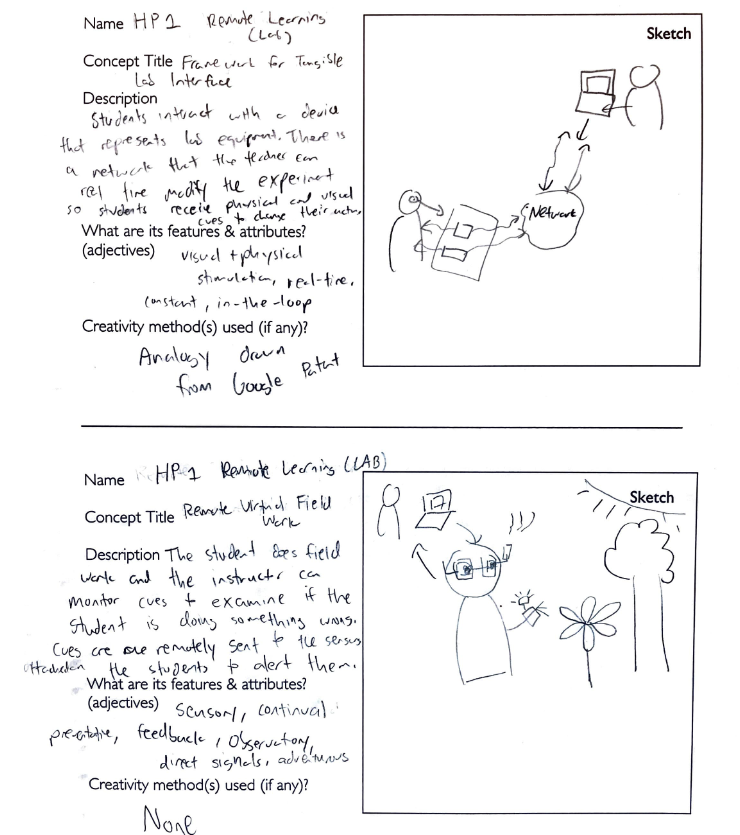 Name HP 1 Remote Learning
(Lab)
Sketch
Concept Title Framework for Tangible
Lab Interface
Description
Students interact with a device
that represents lab equipment. There is
a network that the teacher can
real time modify the experiment
so students receive physical and visual
cues to change their
What are its features & attributes?
(adjectives) visual + physical
stimulation, real-time,
constant, in-the-loop
Creativity method(s) used (if any)?
Analogy drawn
from Google Patent
Network
Name HP 1 Remote Learning (LAB)
Sketch
Concept Title Remote Virtual Field
Work
Description The student does field
work and the instructor can
monitor cues + examine if the
student is doing something wrong.
Cues are remotely sent to the sensors
the students to alert them.
What are its features & attributes?
(adjectives) sensory, continual
feedback, observatory,
direct signals, adventurous
Creativity method(s) used (if any)?
None
17
!!!